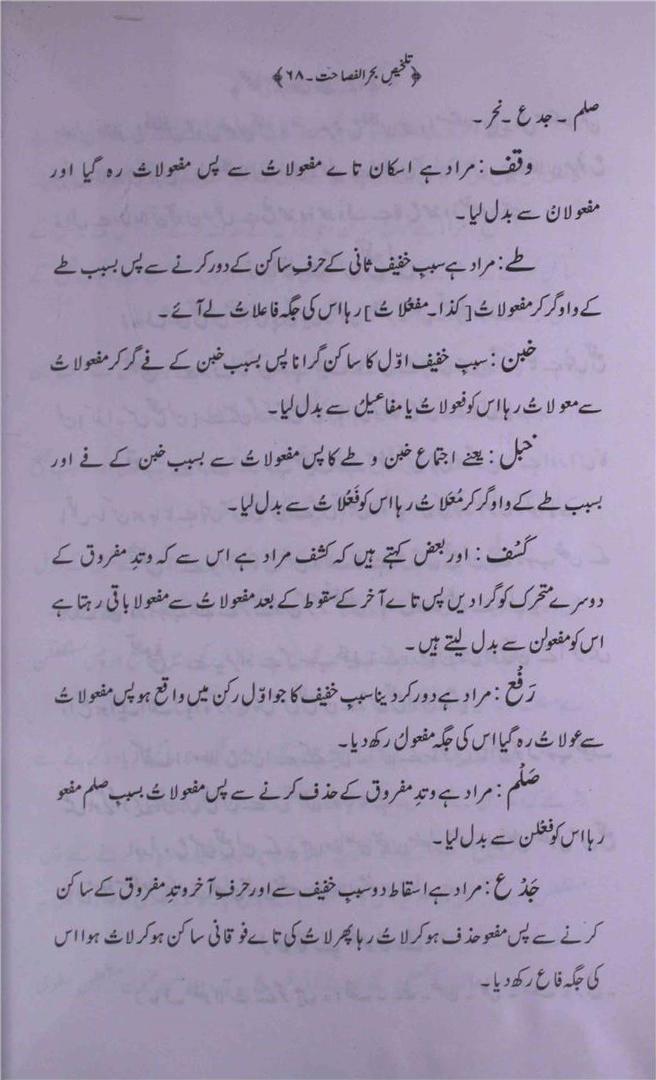 ﴿تلخیصِ بحر الفصاحت۔۶۸﴾
صلم۔جدع۔نحر۔
وقف: مراد ہے اسکان تائے مفعولاتُ سے پس مفعولاتْ رہ گیا اور
مفعولان سے بدل لیا۔
طے: مراد ہے سببِ خفیف ثانی کے حرفِ ساکن کے دور کرنے سے پس بسبب طے
کے واو گر کر مفعولاتُ [کذا۔مفعُلاتُ] رہا اس کی جگہ فاعلاتُ لے آئے۔
خبن: سببِ خفیف اوّل کا ساکن گرانا پس بسبب خبن کے فے گر کر مفعولاتُ
سے معولاتُ رہا اس کو فعولاتُ یا مفاعیلُ سے بدل لیا۔
خبل: یعنے اجتماع خبن و طے کا پس مفعولاتُ سے بسبب خبن کے فے اور
بسبب طے کے واو گر کر مُعَلاتُ رہا اس کو فَعَلاتُ سے بدل لیا۔
کَسْف: اور بعض کہتے ہیں کہ کشف مراد ہے اس سے کہ وتدِ مفروق کے
دوسرے متحرک کو گرا دیں پس تائے آخر کے سقوط کے بعد مفعولاتُ سے مفعولا باقی رہتا ہے
اس کو مفعولن سے بدل لیتے ہیں۔
رَفْع: مراد ہے دور کر دینا سببِ خفیف کا جو اوّل رکن میں واقع ہو پس مفعولاتُ
سے عولاتُ رہ گیا اس کی جگہ مفعولُ رکھ دیا۔
صَلْم: مراد ہے وتدِ مفروق کے حذف کرنے سے پس مفعولاتُ بسبب صلم مفعو
رہا اس کو فعْلن سے بدل لیا۔
جَدْع: مراد ہے اسقاط دو سببِ خفیف سے اور حرفِ آخر وتدِ مفروق کے ساکن
کرنے سے پس مفعو حذف ہو کر لاتُ رہا پھر لاتُ کی تائے فوقانی ساکن ہو کر لاتْ ہوا اس
کی جگہ فاع رکھ دیا۔